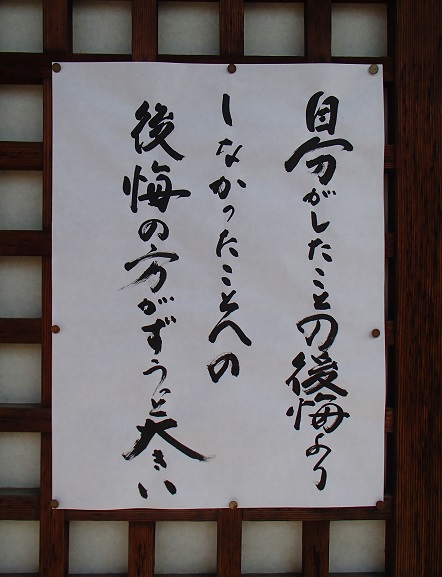 自分がしたことの後悔より
しなかったことへの
後悔の方がずうっと大きい